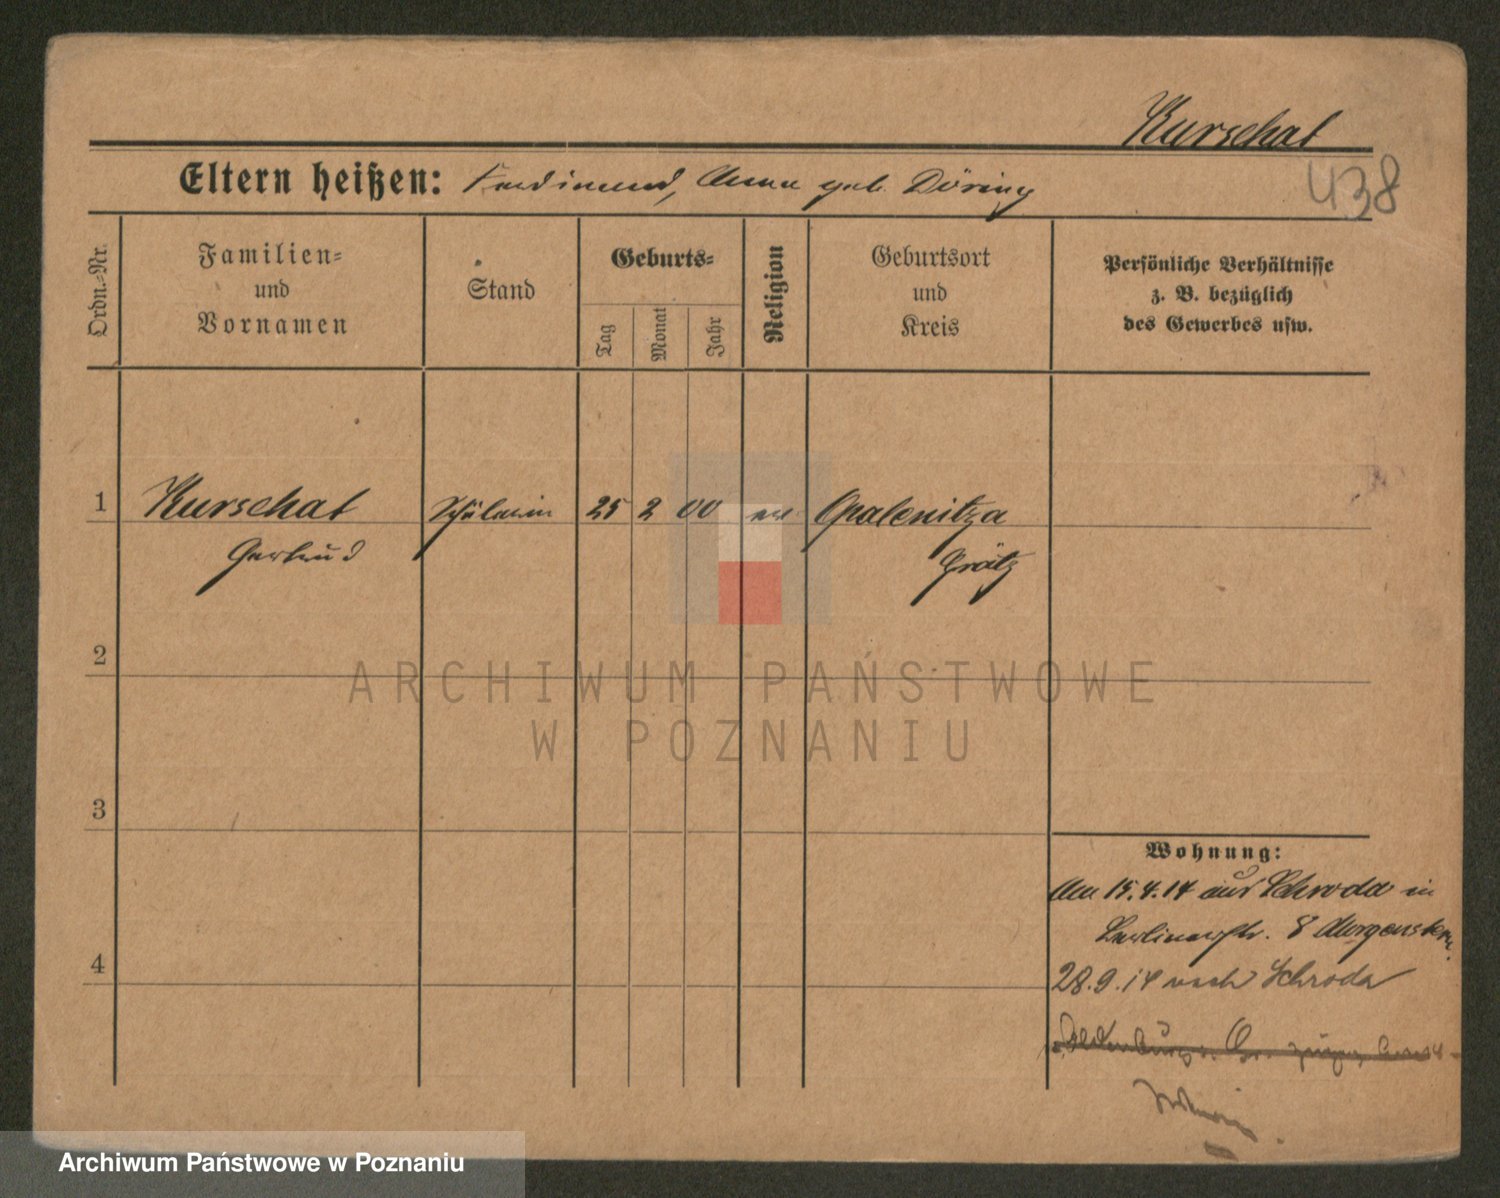 Kurschat
438
Eltern heißen: Ferdinand, Anna geb. Döring
Ordn.-Nr.
Familien-
und
Vornamen
Stand
Geburts-
Tag
Monat
Jahr
Religion
Geburtsort
und
Kreis
Persönliche Verhältnisse
z. B. bezüglich
des Gewerbes usw.
1 Kurschat Schülerin 25 2 00 ev Opalenitza
Gertrud Grätz
2
3
4
Wohnung:
Am 15.4.14 aus Schroda in
Berlinerstr. 8 Morgenstern.
28.9.14 nach Schroda
ARCHIWUM PAŃSTWOWE
W POZNANIU
Archiwum Państwowe w Poznaniu